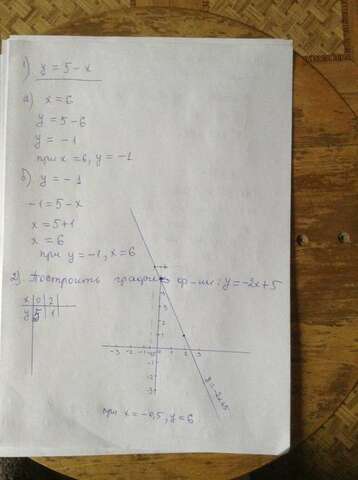 1) y = 5 - x
a) x = 6
y = 5 - 6
y = -1
при x = 6, y = -1
б) y = -1
-1 = 5 - x
x = 5+1
x = 6
при y = -1, x = 6
2) Построить график ф-ии: y = -2x+5
x | 0 | 2
y | 5 | 1
-3 -2 -1 1 2 3
1
-1
-2
-3
y = -2x+5
при x = -0,5, y = 6